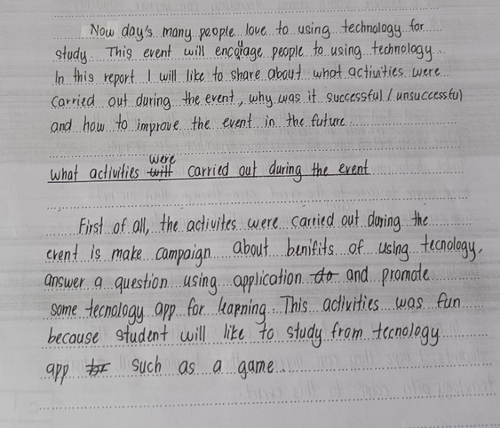 Now day's many people love to using technology for
study. This event will encourage people to using technology.
In this report I will like to share about what activities were
carried out during the event, why was it successful / unsuccessful
and how to improve the event in the future.
what activities were carried out during the event
First of all, the activites were carried out during the
event is make campaign about benifits of using tecnology,
answer a question using application and promote
some tecnology app for learning. This activities was fun
because student will like to study from tecnology
app such as a game.